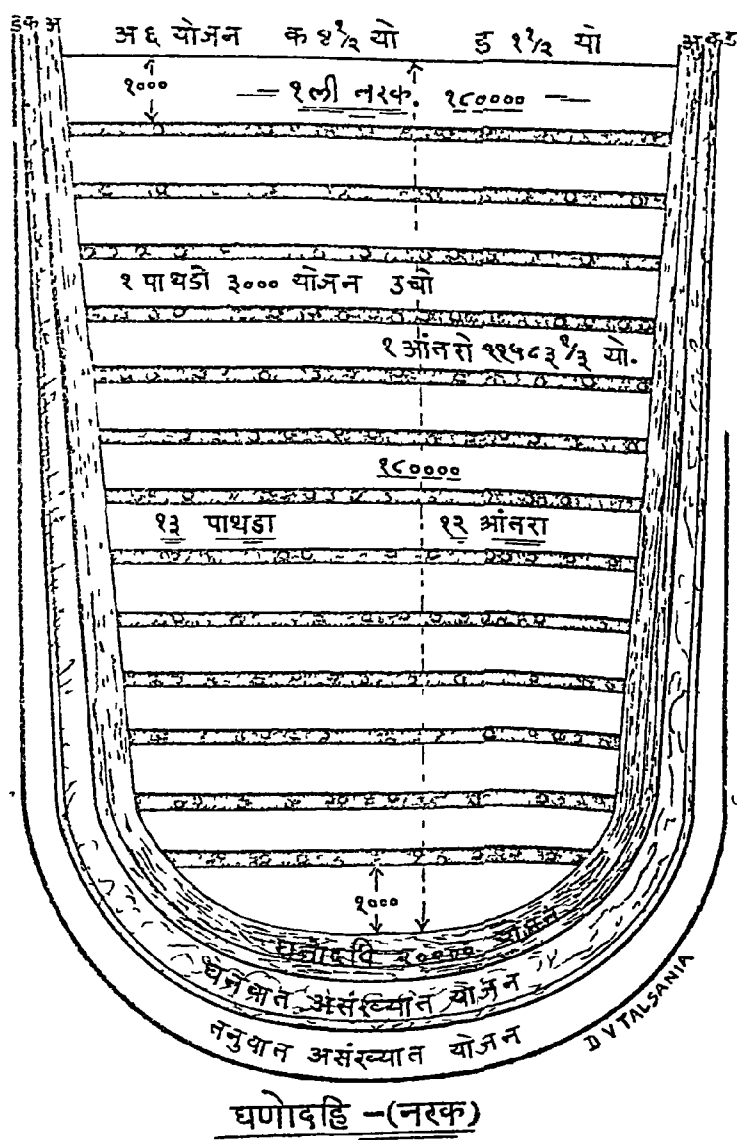 ड क अ अ ६ योजन क ४१/२ यो ड ११/२ यो अ क ड
१००० — १ली नरक. १८०००० —
१ पाथडो ३००० योजन उचो
१ आंतरो ११५८३१/३ यो.
१८००००
१३ पाथडा १२ आंतरा
१०००
घनोदधि २०००० योजन
घनवात असंख्यात योजन
तनुवात असंख्यात योजन
D V TALSANIA
घणोदहि -(नरक)